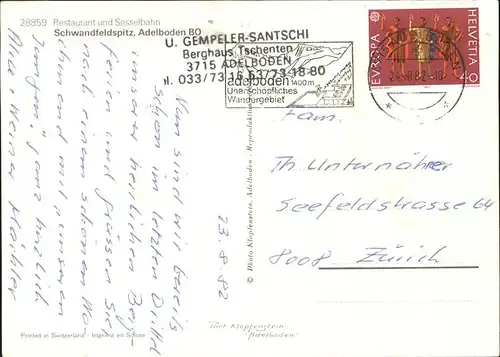 28859 Restaurant und Sesselbahn
Schwandfeldspitz, Adelboden BO
U. GEMPELER-SANTSCHI
Berghaus Tschenten
3715 ADELBODEN
Tel. 033/73 16 53/73 18 80
adelboden 1400m
Unerschöpfliches
Wandergebiet
EUROPA
HELVETIA
40
24.-8.82.-18
Nun sind wir bereits
schon im letzten Drittel
unseren herrlichen Berg-
ferien und grüssen Sie
nach einem schönen
und mit unseren
Jungen ganz herzlich
23.8.82
Fam.
Th Unternährer
Seefeldstrasse 64
8008 Zürich
© Photo Klopfenstein, Adelboden - Reproduktion
Photo Klopfenstein
"Adelboden"
Printed in Switzerland - Imprimé en Suisse